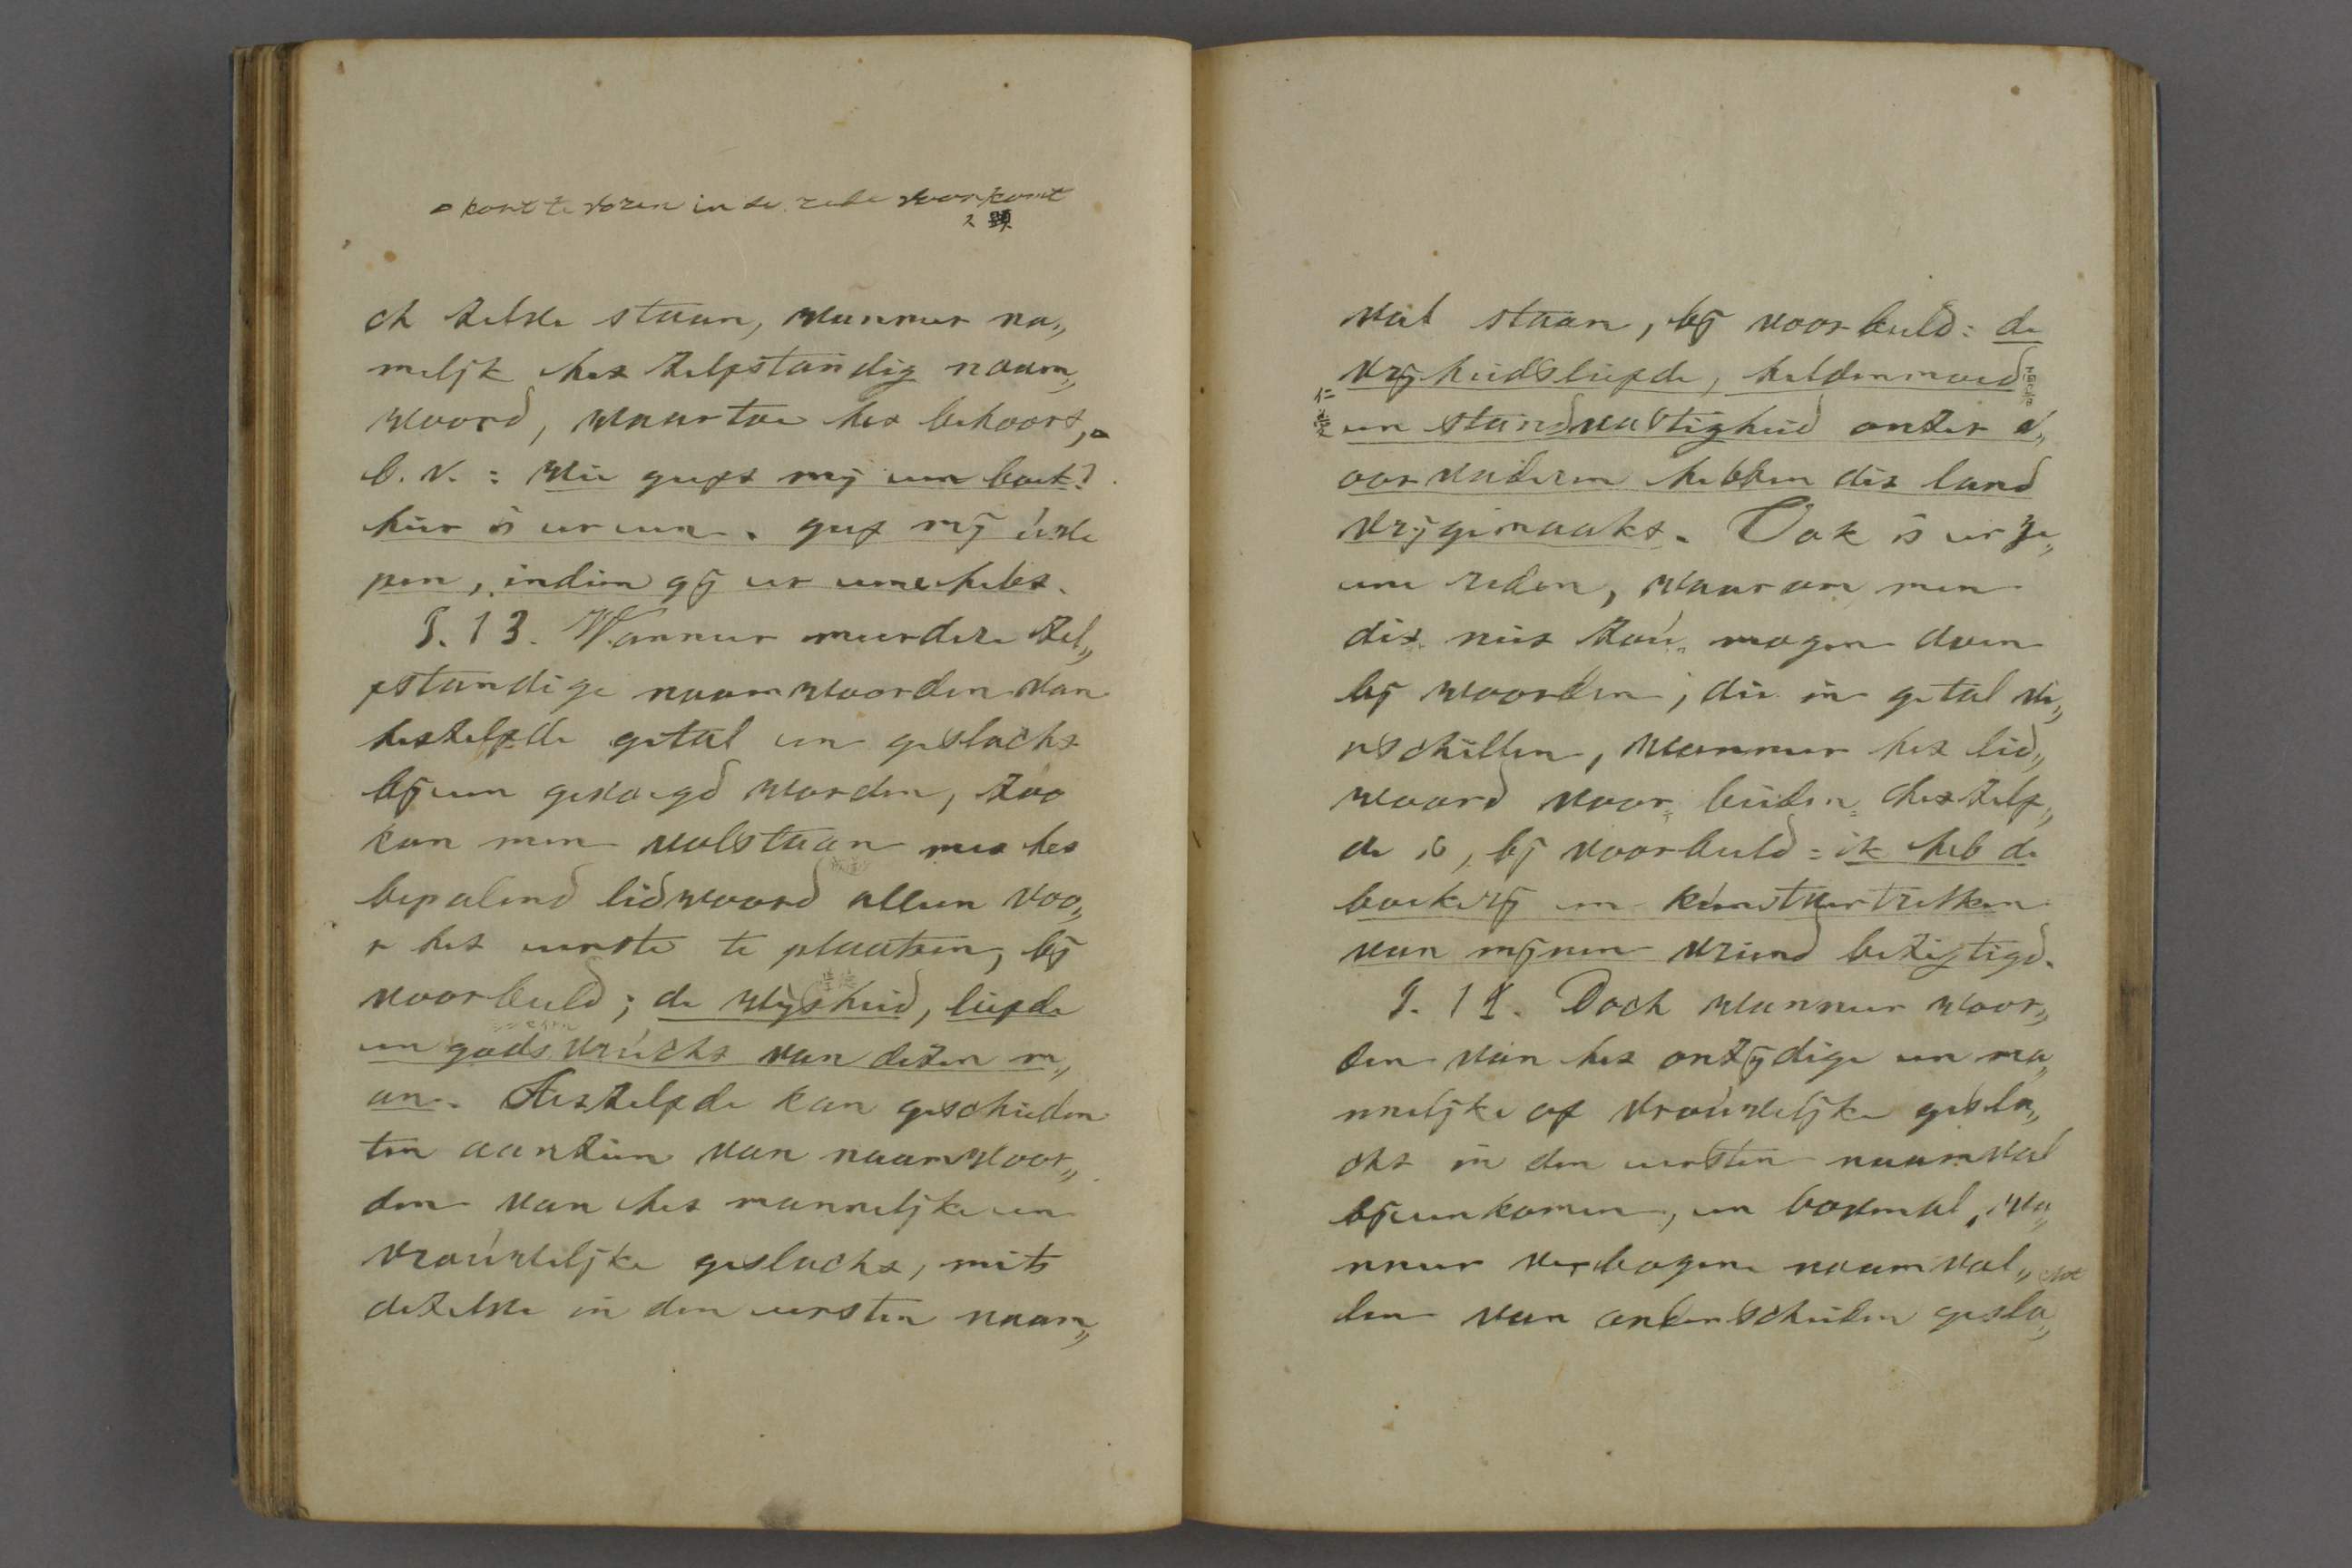 kort te voren in de rede voorkomt
ch zelve staan, wanneer na„
meljk het zelfstandig naam„
woord, waartoe het behoort,
b.v.: wie geeft mij een boek?
hier is er een. geef mij eene
pen, indien gij er eene hebt.
§. 13. Wanneer meerdere zel„
fstandige naamwoorden van
hetzelfde getal en geslacht
bijeen gevoegd worden, zoo
kan men volstaan met het
bepalend lidwoord alleen voo„
r het eerste te plaatsen, bij
voorbeeld; de wijsheid, liefde
en godsvrucht van dezen m„
an. Hetzelfde kan geschieden
ten aanzien van naamwoor„
den van het manneljke en
vrouweljke geslacht, mits
dezelve in den eersten naam„
val staan, bij voorbeeld: de
vrijheidsliefde, heldenmoed
en standvastigheid onzer v„
oorvaderen hebben dit land
vrijgemaakt. Ook is er ge„
ene reden, waarom men
dit niet zou mogen doen
bij woorden, die in getal ve„
rschillen, wanneer het lid„
woord voor beiden hetzelf„
de is, bij voorbeeld: ik heb de
boekerij en kunstvertrekken
van mijnen vriend bezigtigd.
§. 14. Doch wanneer woor„
den van het onzijdige en ma„
nneljke of vrouweljke gesla„
cht in den eersten naamval
bijeenkomen, en bovenal, wa„
nneer verbogene naamval„
len van onderscheiden gesla„